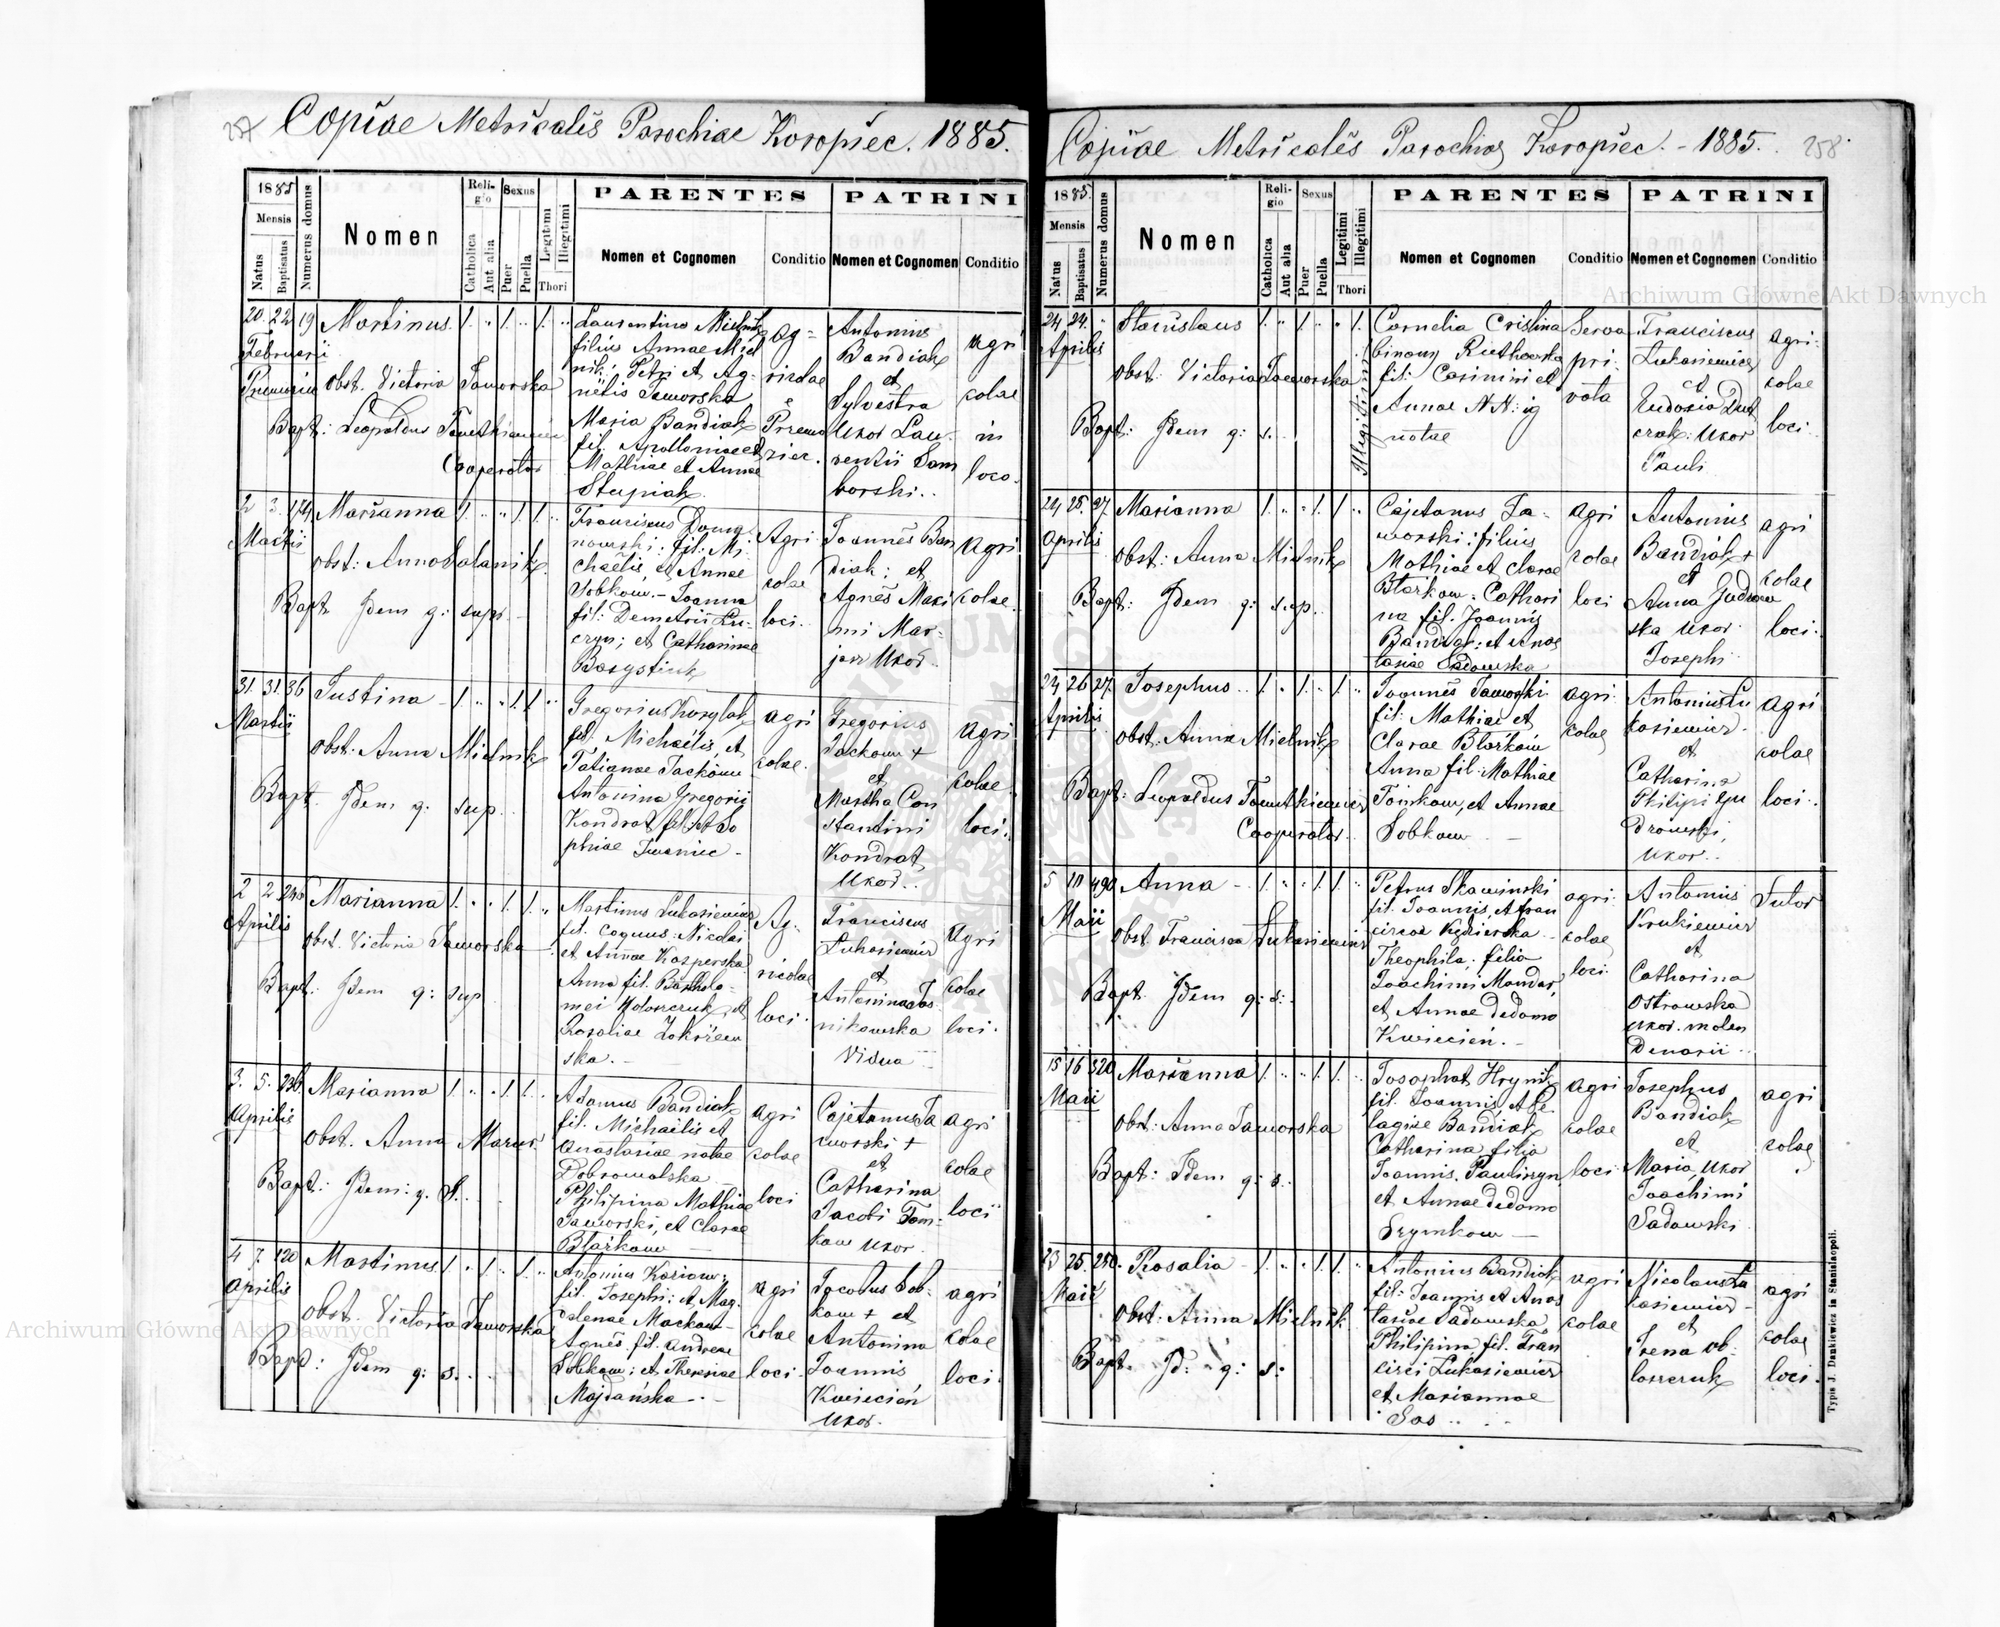 257 Copiae Metricales Parochiae Koropiec. 1885.
1885
Mensis
Natus
Baptisatus
Numerus domus
Nomen
Religio
Catholica
Aut alia
Sexus
Puer
Puella
Legitimi
Illegitimi
Thori
PARENTES
Nomen et Cognomen
Conditio
PATRINI
Nomen et Cognomen
Conditio
20. 22 19 Martinus 1. " 1. " 1. "
Februarii
obst. Victoria Jaworska
Bapt: Leopoldus
Cooperator
Laurentius Mielnik
filius Annae Miel
nik; Petri et Ag-
netis Jaworska
Maria Bandiak
fil. Apolloniae et
Mathiae et Annae
Stupiak
Ag-
ricolae
Antonius
Bandiak
et
Sylvestra
uxor Lau-
rentii Sam
borski..
agri
colae
in
loco.
2 3. 174 Marianna 1. " " 1. 1. "
Martii
obst: Anna Salamik
Bapt Idem q: supr.
Franciscus Dom
nowski: fil: Mi
chaelis et Annae
Sobkow.- Joanna
fil: Demetrii Lu-
cryn; et Catharinae
Bazystiuk
Agri
colae
loci.
Joannes Ban
diak; et
Agnes Maxi
mi Mar-
jarz Uxor.
Agri
colae.
31. 31. 36 Justina 1. " " 1. 1. "
Martii
obst. Anna Mielnik
Bapt. Idem q: sup.
Gregorius Korylak
fil. Michaelis et
Tatianae Jackow
Antonina Gregorii
Kondrat fil: et So
phiae Iwaniec -
agri
colae.
Gregorius
Jackow +
et
Martha Con
stantini
Kondrat
Uxor..
agri
colae
loci.
2 2 Marianna 1. " " 1. 1. "
Aprilis
obst. Victoria Jaworska
Bapt: Idem q: sup
Martinus Lukasiewicz
fil. Cognus: Nicolai
et Annae Kasperska
Anna fil. Bartholo-
mei Holowczuk, et
Rosaliae Zakrzew
ska.-
Ag-
ricolae
loci.
Franciscus
Lukasiewicz
et
Antonina Jas
nikowska
Vidua
agri
colae
loci.
3. 5. 236. Marianna 1. " " 1. 1. "
Aprilis
obst. Anna Mazur.
Bapt.: Idem: q. S.
Adamus Bandiak
fil. Michaelis et
Anastasiae natae
Dobrowolska
Philipina Mathiae
Jaworski, et Clarae
Blazkow
agri
colae
loci
Cajetanus Ja
worski +
et
Catharina
Jacobi Tom-
kow uxor.
agri
colae
loci
4 7. 120 Martinus 1. " 1. " 1. "
Aprilis
obst. Victoria Jaworska
Bapt: Idem q: s.
Antonius Kasiow:
fil. Josephi; et Mag-
dalenae Mackow-
Agnes fil. Andreae
Sobkow; et Theresiae
Majdańska -
agri
colae
loci.
Jacobus Sob-
kow + et
Antonina
Joannis
Kwiecień
uxor.
agri
colae
loci.
Copiae Metricales Parochiae Koropiec. - 1885. 258.
1885.
Mensis
Natus
Baptisatus
Numerus domus
Nomen
Religio
Catholica
Aut alia
Sexus
Puer
Puella
Legitimi
Illegitimi
Thori
PARENTES
Nomen et Cognomen
Conditio
PATRINI
Nomen et Cognomen
Conditio
24 24. " Stanislaus 1. " 1. " " 1.
Aprilis
obst: Victoria Jaworska
Bapt: Idem q: s.
Illegitimi
Cornelia Cristina
fil: Casimiri et
Annae N.N: ig
notae
Serva
pri-
vata
Franciscus
Lukasiewicz
et
Eudoxia Dut
czak: Uxor
Pauli
agri.
colae
loci
24 25. 27. Marianna 1. " " 1. 1. "
Aprilis
obst: Anna Mielnik
Bapt: Idem q: sup.
Cajetanus Ja-
worski: filius
Mathiae et Clarae
Blazkow: Cathari
na fil. Joannis
Bandiak: et Anas
tasiae Sadowska
agri
colae
loci
Antonius
Bandiak +
et
Anna
ska uxor.
Josephi
agri
colae
loci.
24 26 27. Josephus.. 1. " 1. " 1. "
Aprilis
obst: Anna Mielnik
Bapt: Leopoldus
Cooperator.
Joannes Jaworski
fil: Mathiae et
Clarae Blazkow
Anna fil: Mathiae
Tomkow, et Annae
Sobkow -
agri
colae
Antonius Lu
kasiewicz.
et
Catharina
Philipi
drowski,
uxor..
agri.
colae
loci.
5 10 490 Anna - 1. " " 1. 1. "
Maii
obst Francisca Lukasiewicz
Bapt. Idem q: s:
Petrus Skawinski
fil. Joannis, et Fran
ciscae
Theophila: filia
Joachimi Mandar,
et Annae de domo
Kwiecień.-
agri
colae
loci
Antonius
Krukiewicz
et
Catharina
Ostrowska
uxor. molen
dinarii
Sutor
15 16 320 Marianna 1. " " 1. 1. "
Maii
obst: Anna Jaworska
Bapt: Idem q: s.
Josophat Hrynik
fil. Joannis, et Pe
lagiae Bandiak
Catharina filia
Joannis Pawliszyn
et Annae de domo
Szymkow -
agri
colae
loci
Josephus
Bandiak
et
Maria, uxor
Joachimi
Sadowski
agri
colae
23 25. 250. Rosalia - 1. " " 1. 1. "
Maii
obst: Anna Mielnik
Bapt. Id: q: s:
Antonius Bandiak
fil: Joannis et Anas
tasiae Sadowska
Philipina fil. Fran
cisci Lukasiewicz
et Mariannae
Sas
agri
colae
Nicolaus Lu
kasiewicz -
et
Irena
agri
colae
loci.
Typis J. Dankiewicz in Stanislaopoli.
Archiwum Główne Akt Dawnych
Archiwum Główne Akt Dawnych